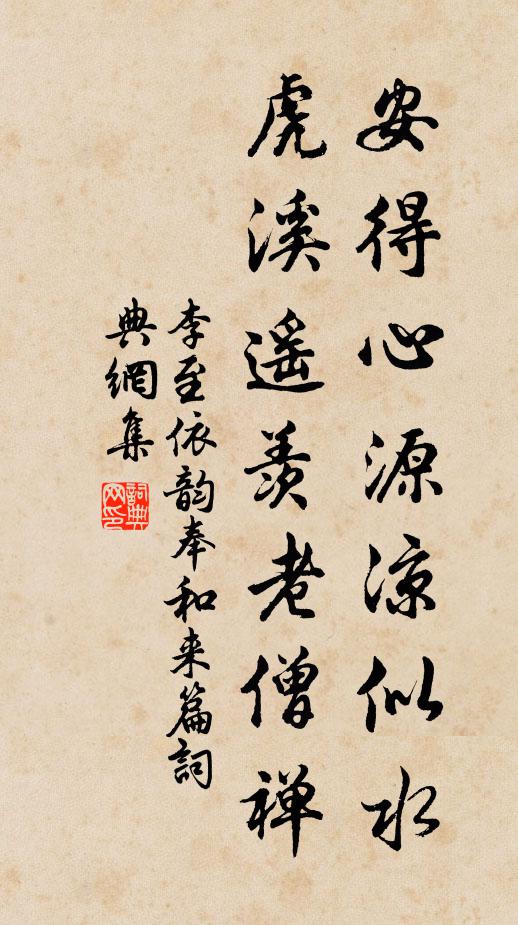 安得心源凉似水
虎溪遥羡老僧禅
李至依韵奉和来篇詞
典網集
詞典网印